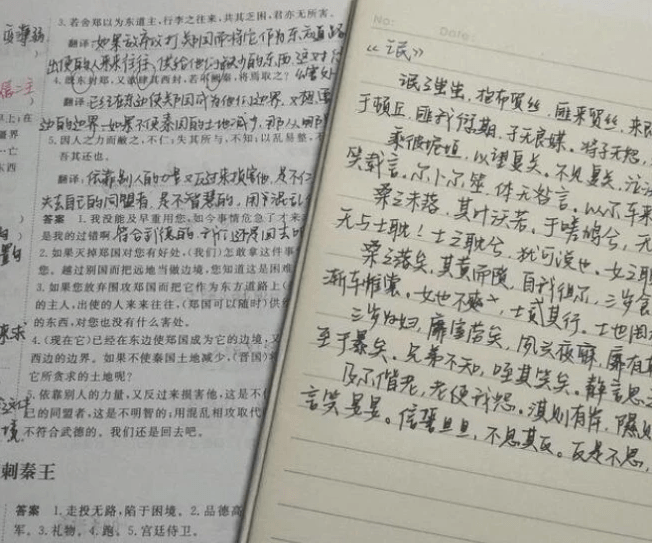 3. 若舍郑以为东道主,行李之往来,共其乏困,君亦无所害。
翻译:如果放弃攻打郑国而将它作为东方道路
出使的人来来往往,
4. 既东封郑,又欲肆其西封,若不阙秦,将焉取之?
翻译:已经在东边使郑国成为他们边界,又想
边的边界,如果不使秦国的土地减少,那从哪
5. 因人之力而敝之,不仁;失其所与,不知;以乱易整,不
吾其还也。
翻译:依靠别人的力量又反过来损害他,是不仁
失去自己的同盟者,是不智慧的,用混乱
答案 1. 我没能及早重用您,如今事情危急了才来
是我的过错啊
2. 如果灭掉郑国对您有好处,(我们)怎敢拿这件事
您。越过别国而把远地当做边境,您知道这是困难
3. 如果您放弃围攻郑国而把它作为东方道路上(
的主人,出使的人来来往往,(郑国可以随时)供
的东西,对您也没有什么害处。
4. (现在它)已经在东边使郑国成为它的边境,又
西边的边界。如果不使秦国土地减少,(晋国)将
它所贪求的土地呢?
5. 依靠别人的力量,又反过来损害他,这是不仁
己的同盟者,这是不明智的;用混乱相攻取代
不符合武德的。我们还是回去吧。
刺秦王
答案 1. 走投无路,陷于困境。2. 品德高
军。3. 礼物。4. 跑。5. 宫廷侍卫。
No:
Date:
《氓》
氓之蚩蚩,抱布贸丝,匪来贸丝,来即
于顿丘,匪我愆期,子无良媒。将子无怒,
乘彼垝垣,以望复关。不见复关,泣涕
笑载言。尔卜尔筮,体无咎言。以尔车来
桑之未落,其叶沃若。于嗟鸠兮,无
无与士耽!士之耽兮,犹可说也。女之耽
桑之落矣,其黄而陨,自我徂尔,三岁食
渐车帷裳。女也不爽,士贰其行。士也罔
三岁为妇,靡室劳矣,夙兴夜寐,靡有朝
至于暴矣。兄弟不知,咥其笑矣。静言思之
及尔偕老,老使我怨。淇则有岸,隰则
言笑晏晏。信誓旦旦,不思其反。反是不思,